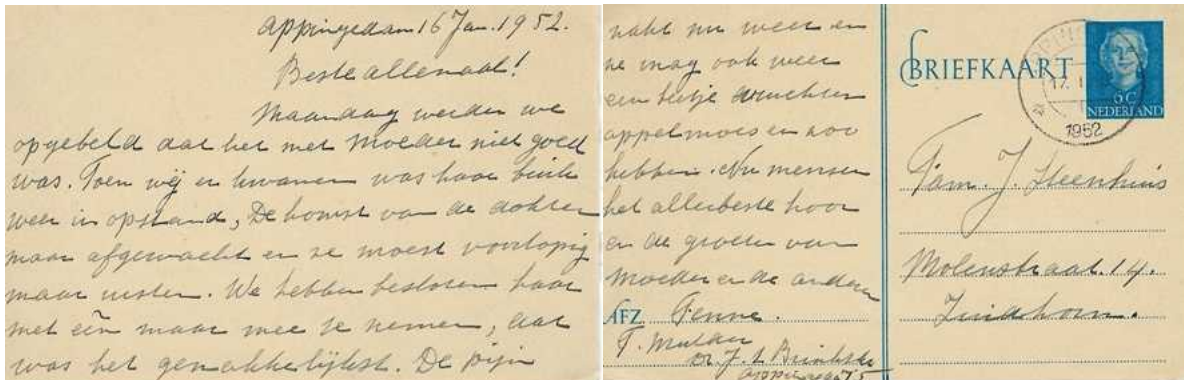 Appingedam 16 Jan. 1952.
Beste allemaal!
Maandag werden we
opgebeld dat het met Moeder niet goed
was. Toen wij er kwamen was haar buik
weer in opstand, De komst van de dokter
maar afgewacht en ze moest voorlopig
maar rusten. We hebben besloten haar
met één maar mee te nemen, dat
was het gemakkelijkst. De pijn
zakt nu weer en
ze mag ook weer
een beetje vruchten
appelmoes en zoo
hebben. Nu mensen
het allerbeste hoor
en de groeten van
Moeder en de anderen
AFZ. Fenne.
F. Mulder
Appingedam
BRIEFKAART
6C
NEDERLAND
17.1
1952
Fam. J. Steenhuis
Molenstraat 14.
Zuidhorn.